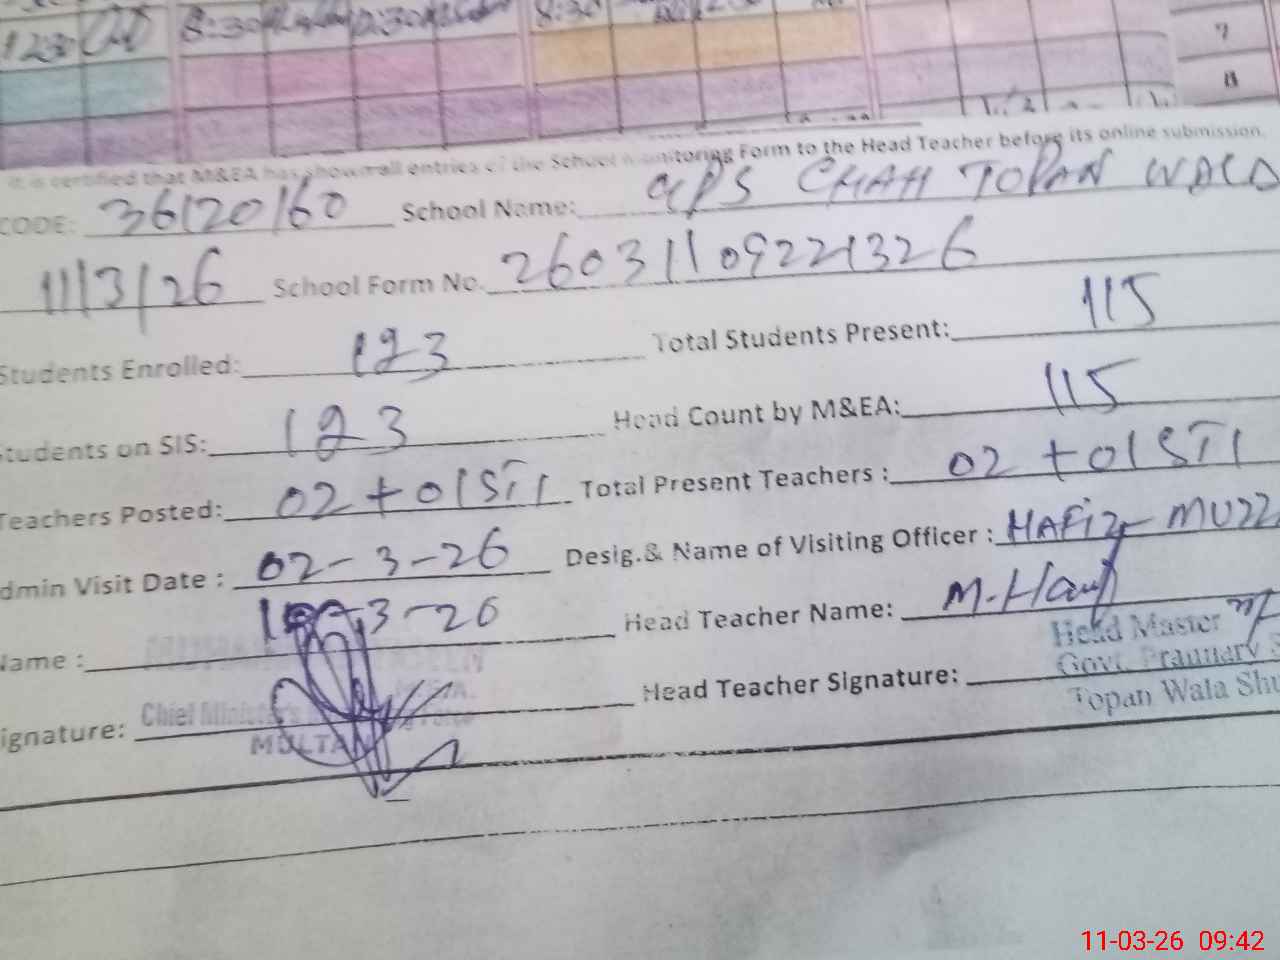 1230
8:30
8:30
7
8
It is certified that M&EA has shown all entries of the School Monitoring Form to the Head Teacher before its online submission.
CODE: 36120160 School Name: GPS CHAH TOPAN WALA
11/3/26 School Form No. 260311092221326
Students Enrolled: 123 Total Students Present: 115
Students on SIS: 123 Head Count by M&EA: 115
Teachers Posted: 02 + 01 STI Total Present Teachers : 02 + 01 STI
dmin Visit Date : 02-3-26 Desig.& Name of Visiting Officer : HAFIZ MUZZ
3-26
Name : Head Teacher Name: M. Hanif
ignature: Head Teacher Signature:
Head Master
Govt. Primary S
Topan Wala Shu
Chief Minister's
MULTAN
11-03-26 09:42